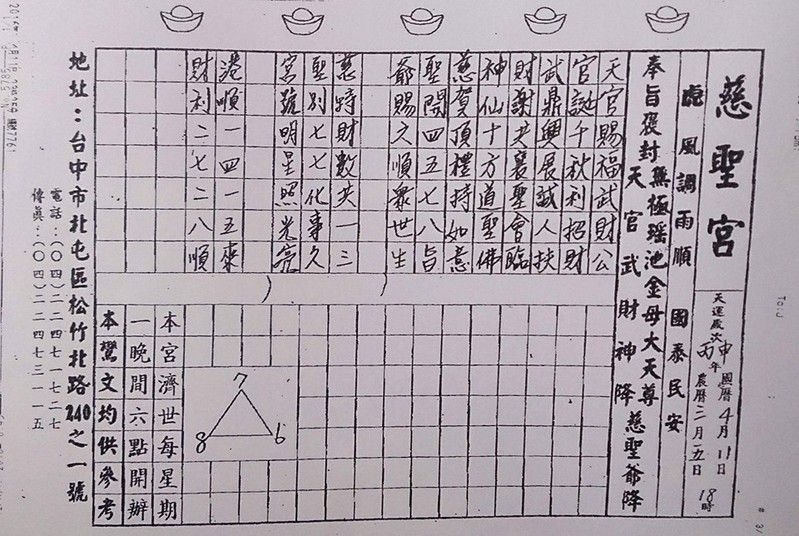 慈聖宮
天運歲次丙申年
國曆4月11日
農曆三月五日
18時
風調雨順 國泰民安
奉旨褒封無極瑤池金母大天尊
天官武財神降
慈聖爺降
天官賜福武財公
官誕千秋利招財
武鼎興展誠人扶
財謝共襄聖會臨
神仙十方道聖佛
慈賀頂禮持如意
聖開四五七八旨
爺賜六順眾世生
慈特財數共一三
聖別七七化事久
宮號明星照光亮
港順一四一五來
財利二七二八順
7
8 6
本宮濟世每星期
一晚間六點開辦
本鸞文均供參考
地址：台中市北屯區松竹北路240之一號
電話：(〇四)二二四七一七二七
傳真：(〇四)二二四七三一一五
To:J